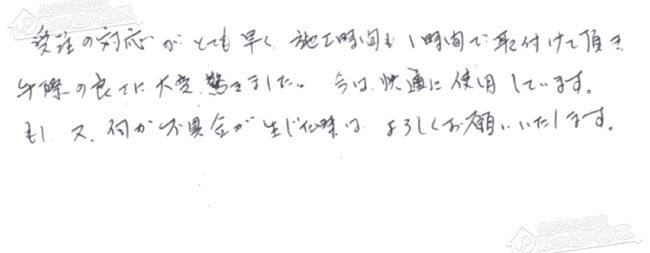 受注の対応がとても早く施工時間も1時間で取付けて頂き
手際の良さに大変驚きました。今は快適に使用しています。
もし又、何か不具合が生じた時はよろしくお願いいたします。